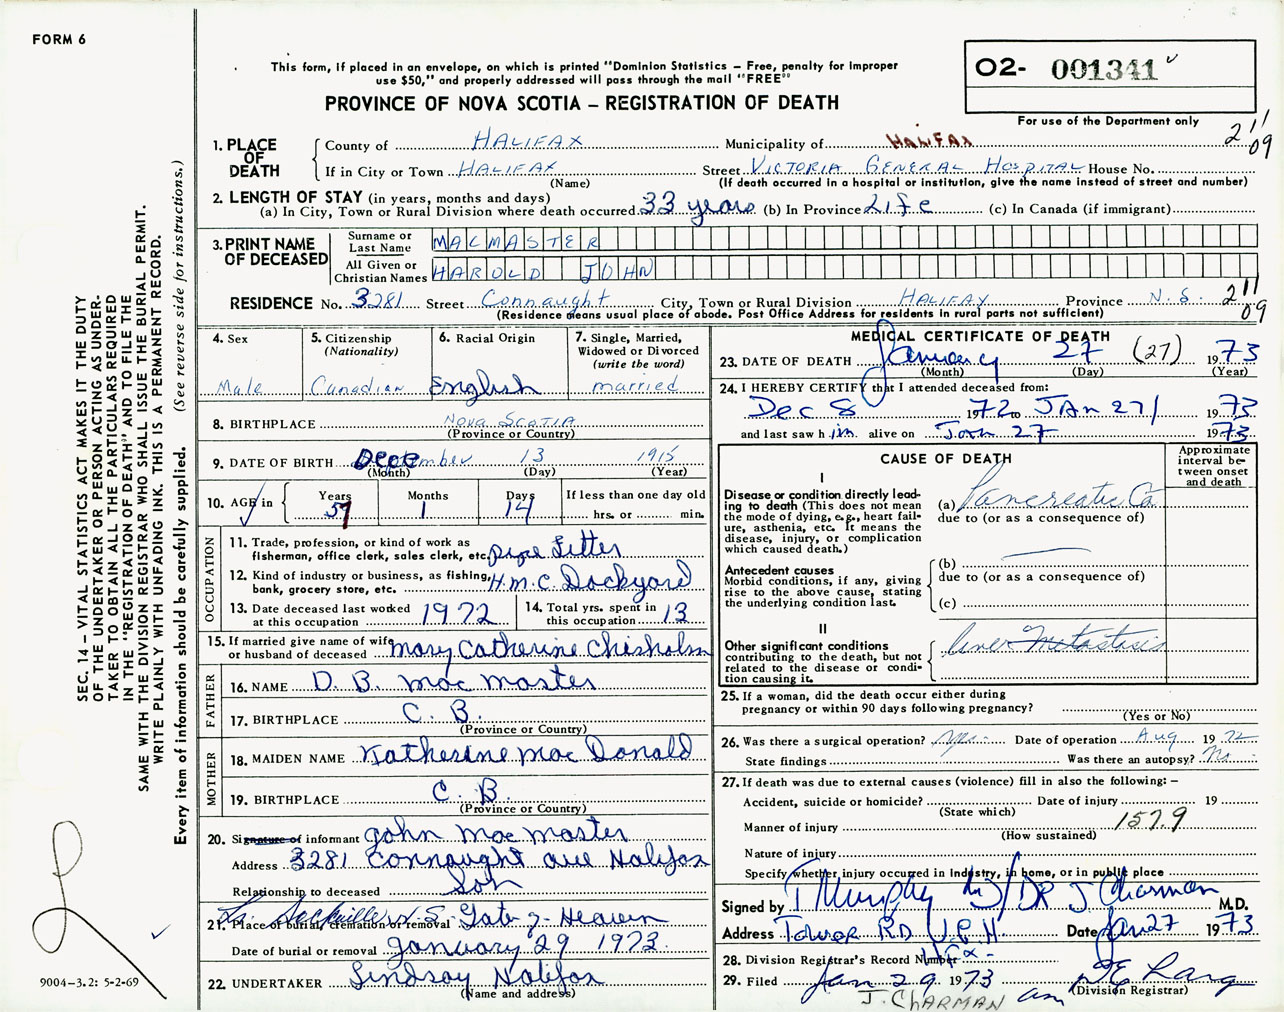 FORM 6
This form, if placed in an envelope, on which is printed "Dominion Statistics – Free, penalty for improper
use $50," and properly addressed will pass through the mail "FREE"
PROVINCE OF NOVA SCOTIA – REGISTRATION OF DEATH
02- 001341
For use of the Department only
211
09
1. PLACE OF DEATH
County of HALIFAX Municipality of HALIFAX
If in City or Town HALIFAX Street VICTORIA GENERAL HOSPITAL House No.
(Name) (If death occurred in a hospital or institution, give the name instead of street and number)
2. LENGTH OF STAY (in years, months and days)
(a) In City, Town or Rural Division where death occurred 33 years (b) In Province Life (c) In Canada (if immigrant)
3. PRINT NAME OF DECEASED
Surname or Last Name MACMASTER
All Given or Christian Names HAROLD JOHN
RESIDENCE No. 3281 Street Connaught City, Town or Rural Division HALIFAX Province N.S. 211
09
(Residence means usual place of abode. Post Office Address for residents in rural parts not sufficient)
4. Sex
Male
5. Citizenship
(Nationality)
Canadian
6. Racial Origin
English
7. Single, Married,
Widowed or Divorced
(write the word)
married
8. BIRTHPLACE NOVA SCOTIA
(Province or Country)
9. DATE OF BIRTH Dece 13 1915
(Month) (Day) (Year)
10. AGE in Years Months Days If less than one day old
57 1 14 hrs. or min.
OCCUPATION
11. Trade, profession, or kind of work as
fisherman, office clerk, sales clerk, etc. Pipe Fitter
12. Kind of industry or business, as fishing,
bank, grocery store, etc. H.M.C. Dockyard
13. Date deceased last worked
at this occupation 1972
14. Total yrs. spent in
this occupation 13
15. If married give name of wife
or husband of deceased Mary Catherine Chisholm
FATHER
16. NAME D. B. MacMaster
17. BIRTHPLACE C. B.
(Province or Country)
MOTHER
18. MAIDEN NAME Katherine MacDonald
19. BIRTHPLACE C. B.
(Province or Country)
20. Signature of informant John MacMaster
Address 3281 Connaught Ave Halifax
Relationship to deceased Son
21. Place of burial, cremation or removal Lr. Sackville N.S. Gate of Heaven
Date of burial or removal January 29 1973
22. UNDERTAKER Lindsay Halifax
(Name and address)
MEDICAL CERTIFICATE OF DEATH
23. DATE OF DEATH January 27 (27) 1973
(Month) (Day) (Year)
24. I HEREBY CERTIFY that I attended deceased from:
Dec 8 1972 to JAN 27/ 1973
and last saw him alive on Jan 27 1973
CAUSE OF DEATH
Approximate
interval be-
tween onset
and death
I
Disease or condition directly lead-
ing to death (This does not
mean the mode of dying, e.g., heart fail-
ure, asthenia, etc. It means the
disease, injury, or complication
which caused death.)
(a) Pancreatic Ca
due to (or as a consequence of)
Antecedent causes
Morbid conditions, if any, giving
rise to the above cause, stating
the underlying condition last.
(b)
due to (or as a consequence of)
(c)
II
Other significant conditions
contributing to the death, but not
related to the disease or condi-
tion causing it.
Liver Metastasis
25. If a woman, did the death occur either during
pregnancy or within 90 days following pregnancy?
(Yes or No)
26. Was there a surgical operation? Date of operation Aug 1972
State findings Was there an autopsy? No
27. If death was due to external causes (violence) fill in also the following: –
Accident, suicide or homicide? Date of injury 19
(State which)
Manner of injury 157.9
(How sustained)
Nature of injury
Specify whether injury occurred in Industry, in home, or in public place
Signed by T Murphy / DR J Charman M.D.
Address Tower RD V.G.H Date Jan 27 1973
28. Division Registrar's Record Number
29. Filed Jan 29 1973
(Division Registrar)
J. CHARMAN am
SEC. 14 – VITAL STATISTICS ACT MAKES IT THE DUTY
OF THE UNDERTAKER OR PERSON ACTING AS UNDER-
TAKER TO OBTAIN ALL THE PARTICULARS REQUIRED
IN THE "REGISTRATION OF DEATH" AND TO FILE THE
SAME WITH THE DIVISION REGISTRAR WHO SHALL ISSUE THE BURIAL PERMIT.
WRITE PLAINLY WITH UNFADING INK. THIS IS A PERMANENT RECORD.
Every item of information should be carefully supplied. (See reverse side for instructions.)
9004-3.2: 5-2-69